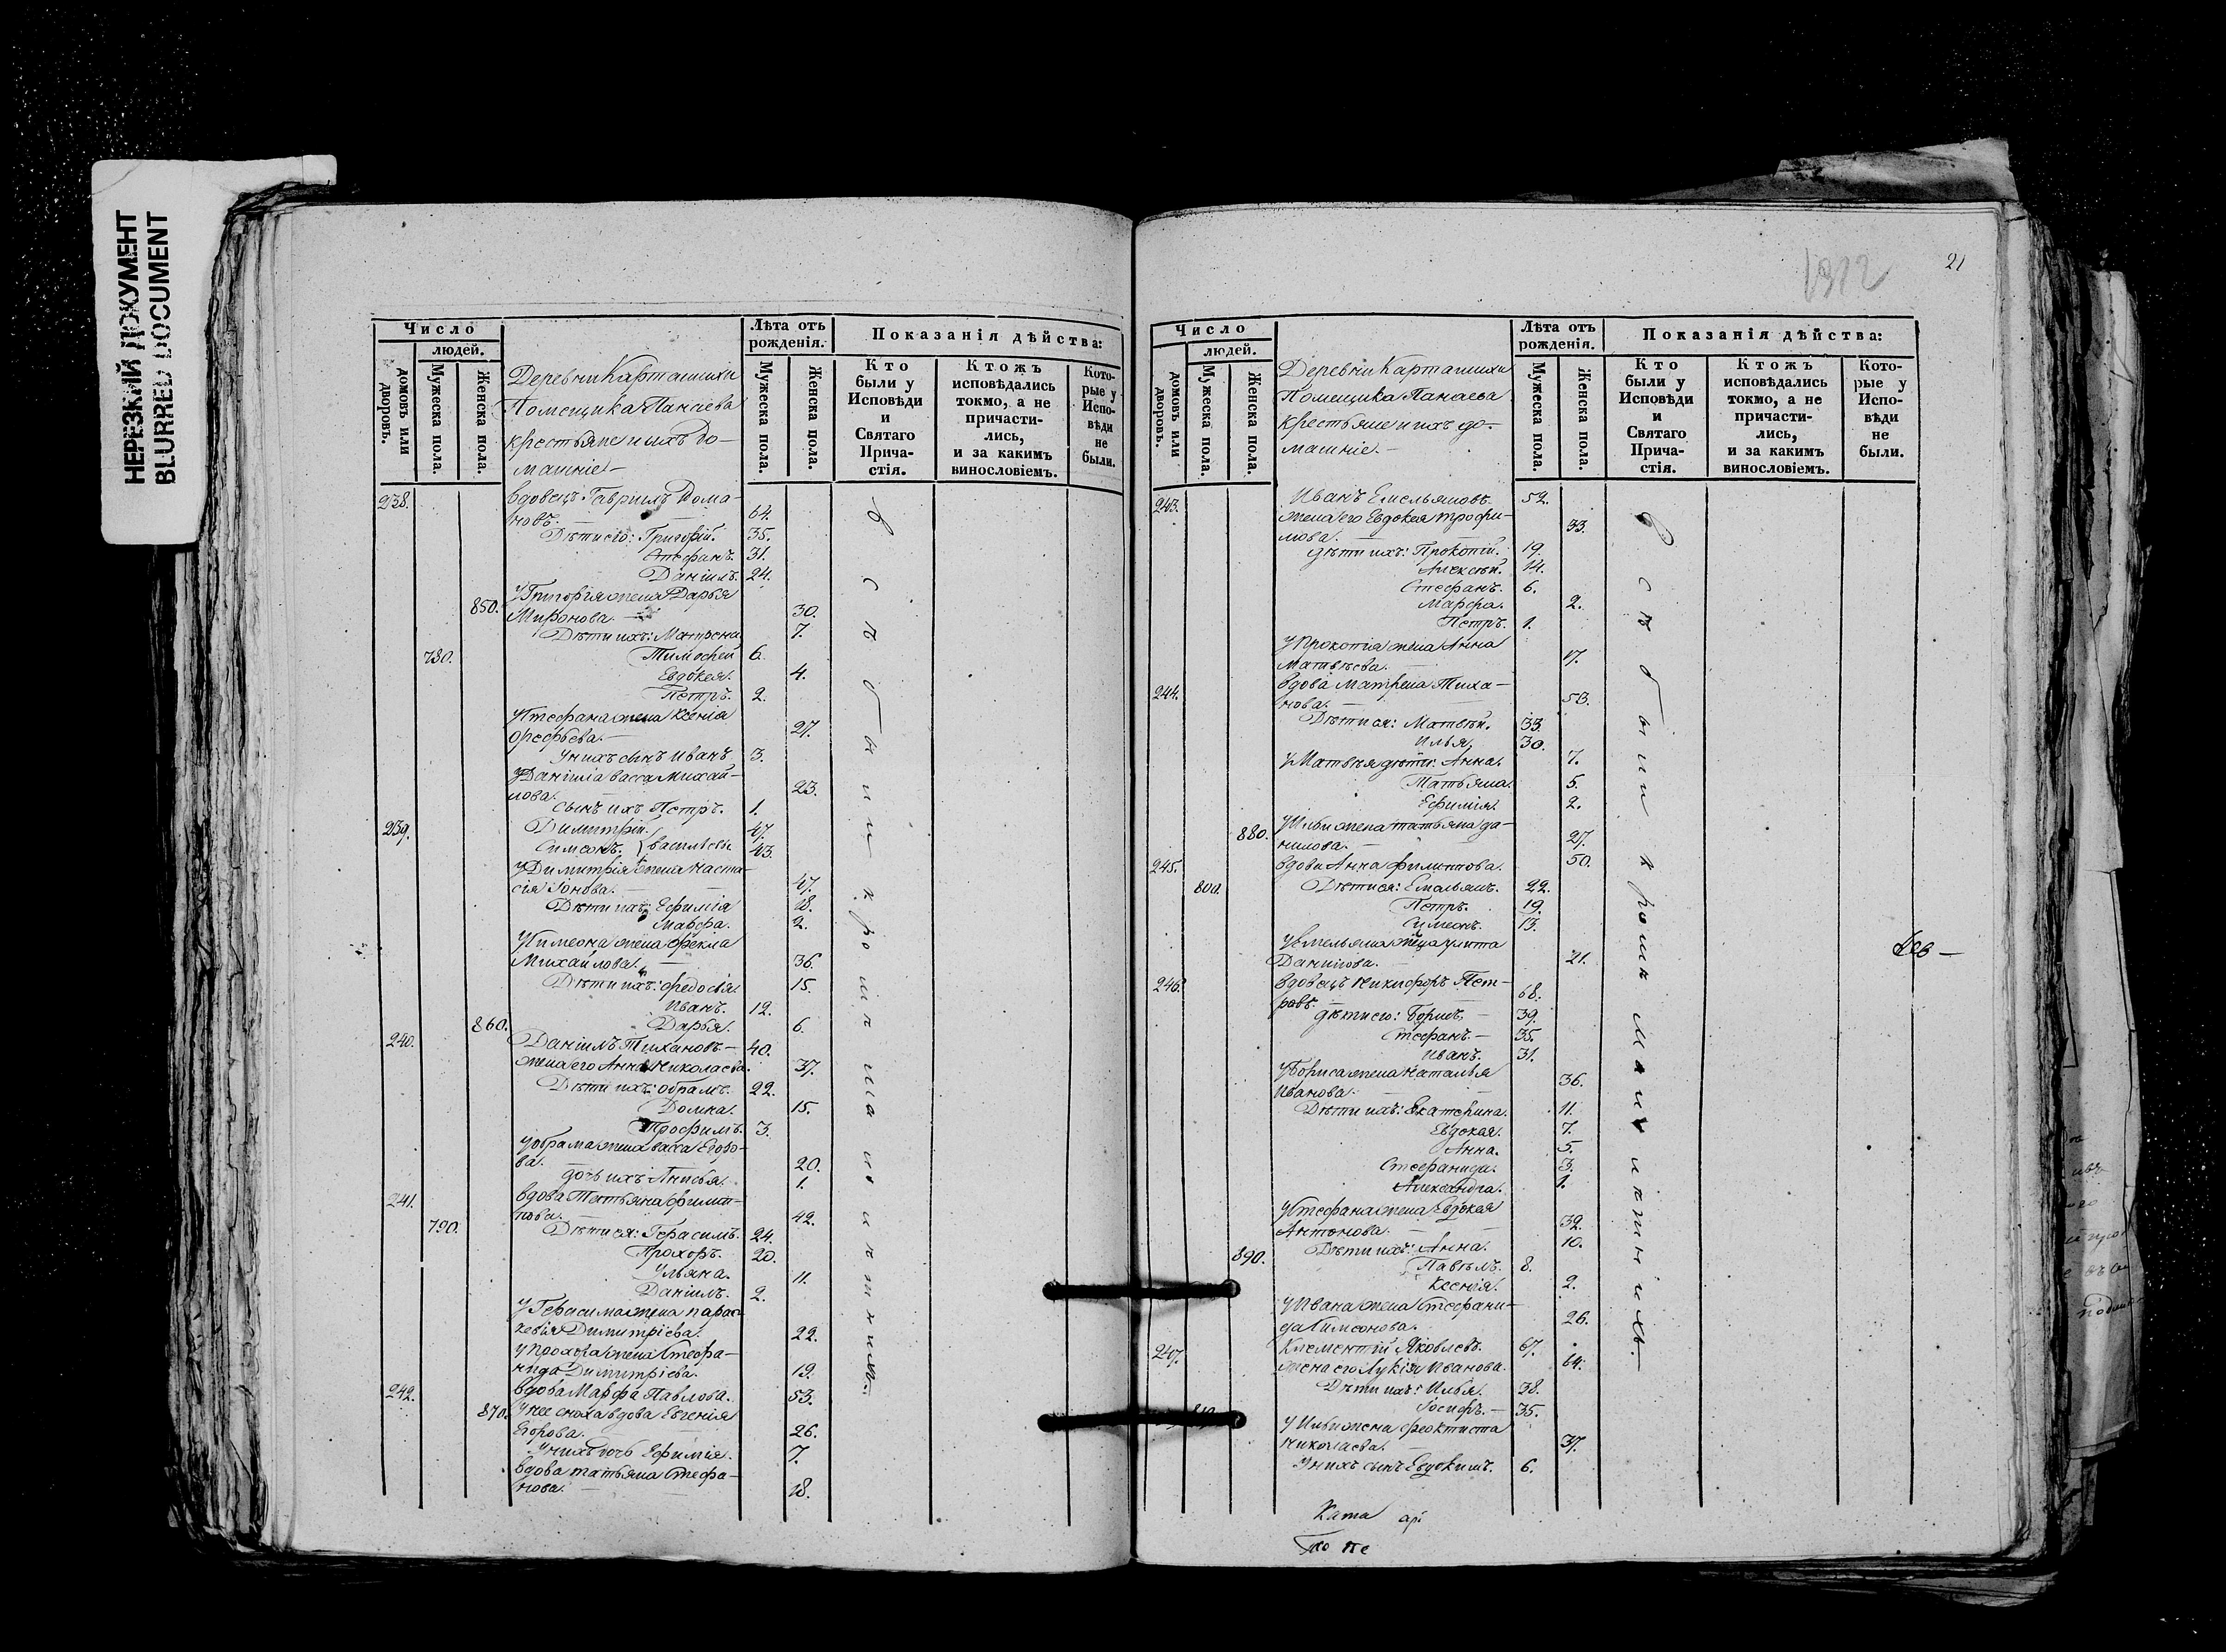 НЕРЕЗКИЙ ДОКУМЕНТ
BLURRED DOCUMENT
Число
людей.
домовъ или дворовъ.
Мужеска пола.
Женска пола.
Деревни Карташихи
Помещика Панаева
крестьяне и ихъ до-
машніе.-
Лѣта отъ рожденія.
Мужеска пола.
Женска пола.
Показанія дѣйства:
Кто были у Исповѣди и Святаго Прича- стія.
Ктожъ исповѣдались токмо, а не причасти- лись, и за какимъ винословіемъ.
Кото- рые у Испо- вѣди не были.
238. вдовецъ Гаврилъ Рома-
новъ. 64.
Дѣти его: Григорій. 35.
Стефанъ. 31.
Даніилъ. 24.
У Григорія жена Дарья
850. Миронова. 30.
Дѣти ихъ: Матрена 7.
780. Тимофей 6.
Евдокея. 4.
Петръ. 2.
У Стефана жена Ксенія
Орефьева.- 27.
У нихъ сынъ Иванъ 3.
У Даніила васса Михай-
лова. 23.
Сынъ ихъ Петръ. 1.
239. Димитрій. 47.
Симеонъ. } васильевы 43.
У Димитрія жена Наста-
сія Іонова. 47.
Дѣти ихъ: Ефимія 18.
Марфа. 2.
У Симеона жена Фекла
Михайлова. 36.
Дѣти ихъ: Федосія. 15.
Иванъ. 12.
860. Дарья. 6.
240. Даніилъ Тихановъ.- 40.
жена его Анна Николаева. 37.
Дѣти ихъ: Обрамъ. 22.
Домна. 15.
Трофимъ. 3.
У Обрама жена васса Егоро-
ва. 20.
дочь ихъ Анисья. 1.
241. вдова Татьяна Филип-
пова. 42.
790. Дѣти ея: Герасимъ. 24.
Прохоръ. 20.
Ульяна. 11.
Даніилъ. 2.
У Герасима жена Парас-
кевія Димитріева. 22.
У Прохора жена Стефа-
нида Димитріева. 19.
242. вдова Марфа Павлова. 53.
870. У нее сноха вдова Евгенія
Егорова. 26.
У нихъ дочь Ефимія. 7.
вдова татьяна Стефа-
нова. 18.
1312
21
Число
людей.
домовъ или дворовъ.
Мужеска пола.
Женска пола.
Деревни Карташихи
Помещика Панаева
крестьяне и ихъ до-
машніе.-
Лѣта отъ рожденія.
Мужеска пола.
Женска пола.
Показанія дѣйства:
Кто были у Исповѣди и Святаго Прича- стія.
Ктожъ исповѣдались токмо, а не причасти- лись, и за какимъ винословіемъ.
Кото- рые у Испо- вѣди не были.
243. Иванъ Емельяновъ. 52.
жена его Евдокея Трофи-
мова. 33.
Дѣти ихъ: Прокопій. 19.
Алексѣй. 14.
Стефанъ. 6.
Марфа. 2.
Петръ. 1.
У Прокопія жена Анна
Матвѣева. 17.
244. вдова Матрена Тиха-
нова. 53.
Дѣти ея: Матвѣй. 33.
Илья. 30.
У Матвѣя дѣти: Анна. 7.
Татьяна. 5.
Ефимія. 2.
У Ильи жена татьяна да-
880. нилова. 27.
245. вдова Анна Филиппова. 50.
800. Дѣти ея: Емельянъ. 22.
Петръ. 19.
Симеонъ. 13.
У Емельяна жена улита
Данилова. 21.
246. вдовецъ Никифоръ Пет-
ровъ. 68.
Дѣти его: Борисъ. 39.
Стефанъ.- 35.
Иванъ. 31.
У Бориса жена Наталья
Иванова. 36.
Дѣти ихъ: Екатерина. 11.
Евдокея. 7.
Анна. 5.
Стефанида. 3.
Александра. 1.
У Стефана жена Евдокея
Антонова. 32.
890. Дѣти ихъ: Анна. 10.
Павелъ. 8.
Ксенія. 2.
У Ивана жена Стефани-
да Симеонова. 26.
247. Климентій Яковлевъ. 67.
жена его Лукія Иванова. 64.
Дѣти ихъ: Илья. 38.
Іосифъ.- 35.
У Ильи жена Феоктиста
Николаева. 37.
У нихъ сынъ Евдокимъ. 6.